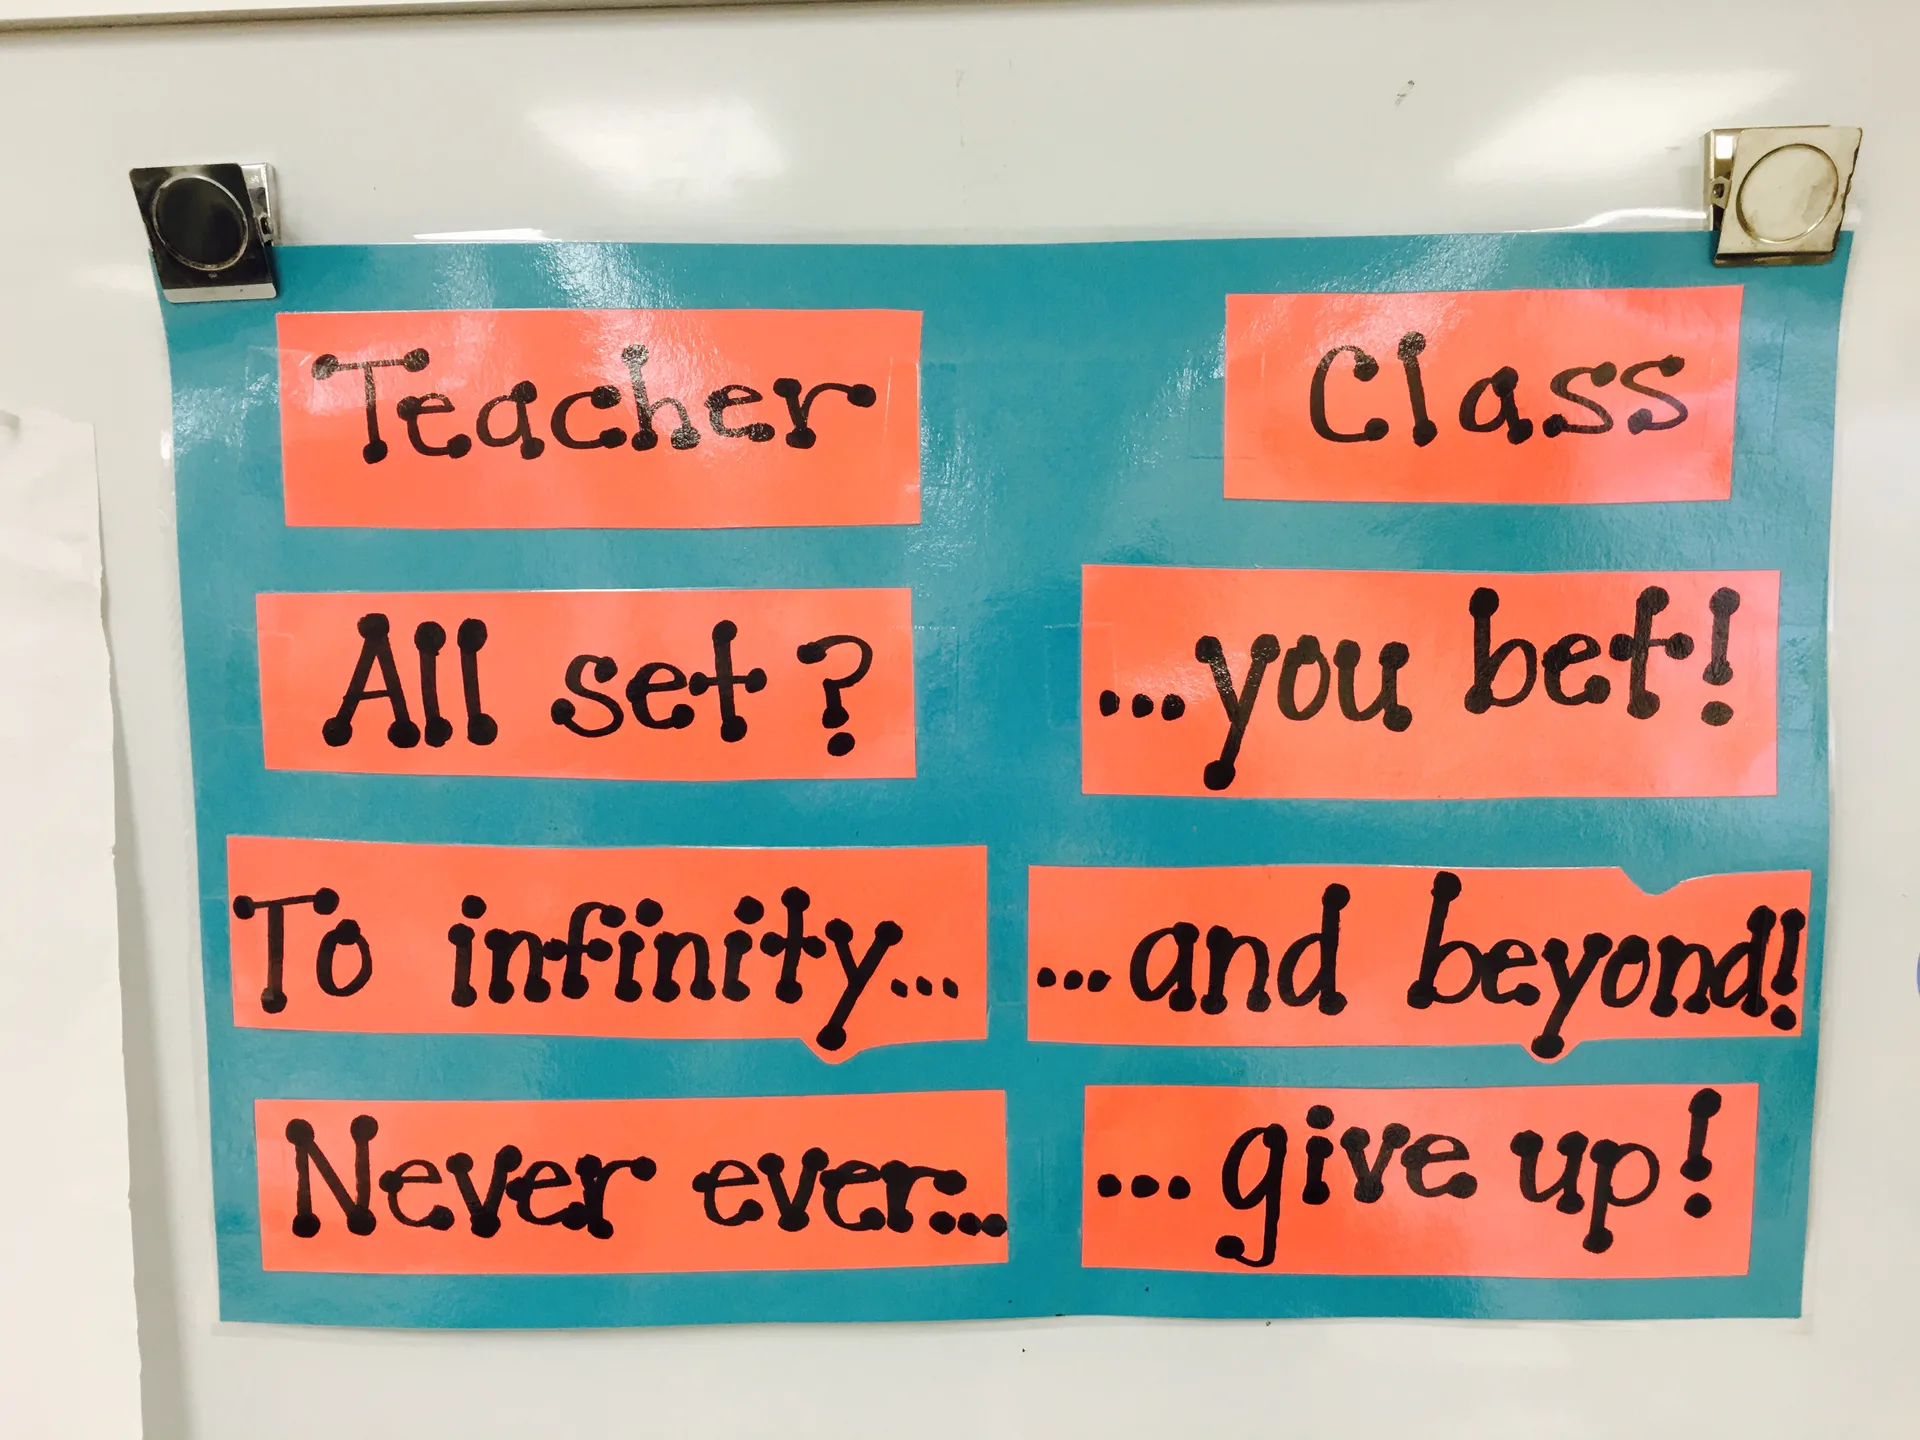 Teacher Class
All set? ...you bet!
To infinity... ...and beyond!
Never ever... ...give up!